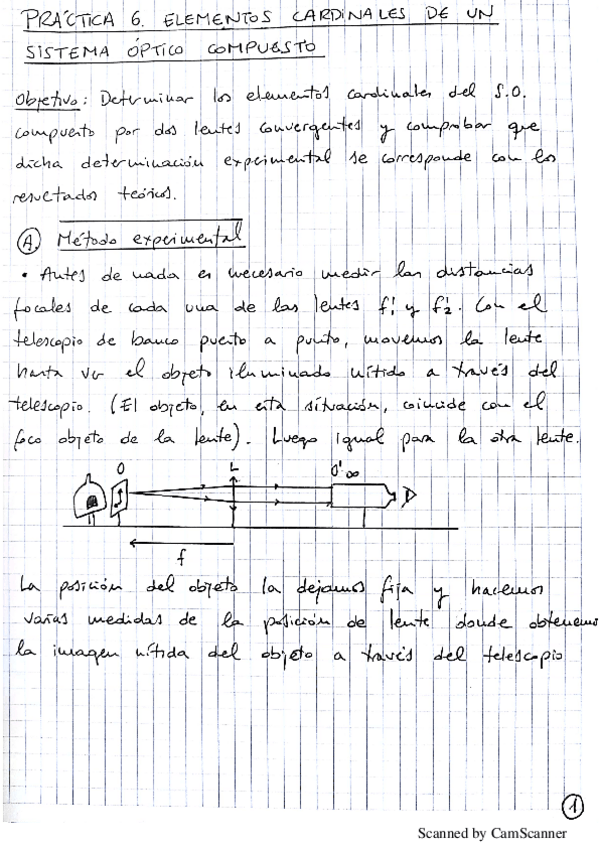 PRÁCTICA 6. ELEMENTOS CARDINALES DE UN
SISTEMA ÓPTICO COMPUESTO
Objetivo: Determinar los elementos cardinales del S.O.
compuesto por dos lentes convergentes y comprobar que
dicha determinación experimental se corresponde con los
resultados teóricos.
A. Método experimental
• Antes de nada es necesario medir las distancias
focales de cada una de las lentes f'1 y f'2. Con el
telescopio de banco puesto a punto, movemos la lente
hasta ver el objeto iluminado nítido a través del
telescopio. (El objeto, en esta situación, coincide con el
foco objeto de la lente). Luego igual para la otra lente.
O L O'∞
f
La posición del objeto la dejamos fija y hacemos
varias medidas de la posición de lente donde obtenemos
la imagen nítida del objeto a través del telescopio
1
Scanned by CamScanner